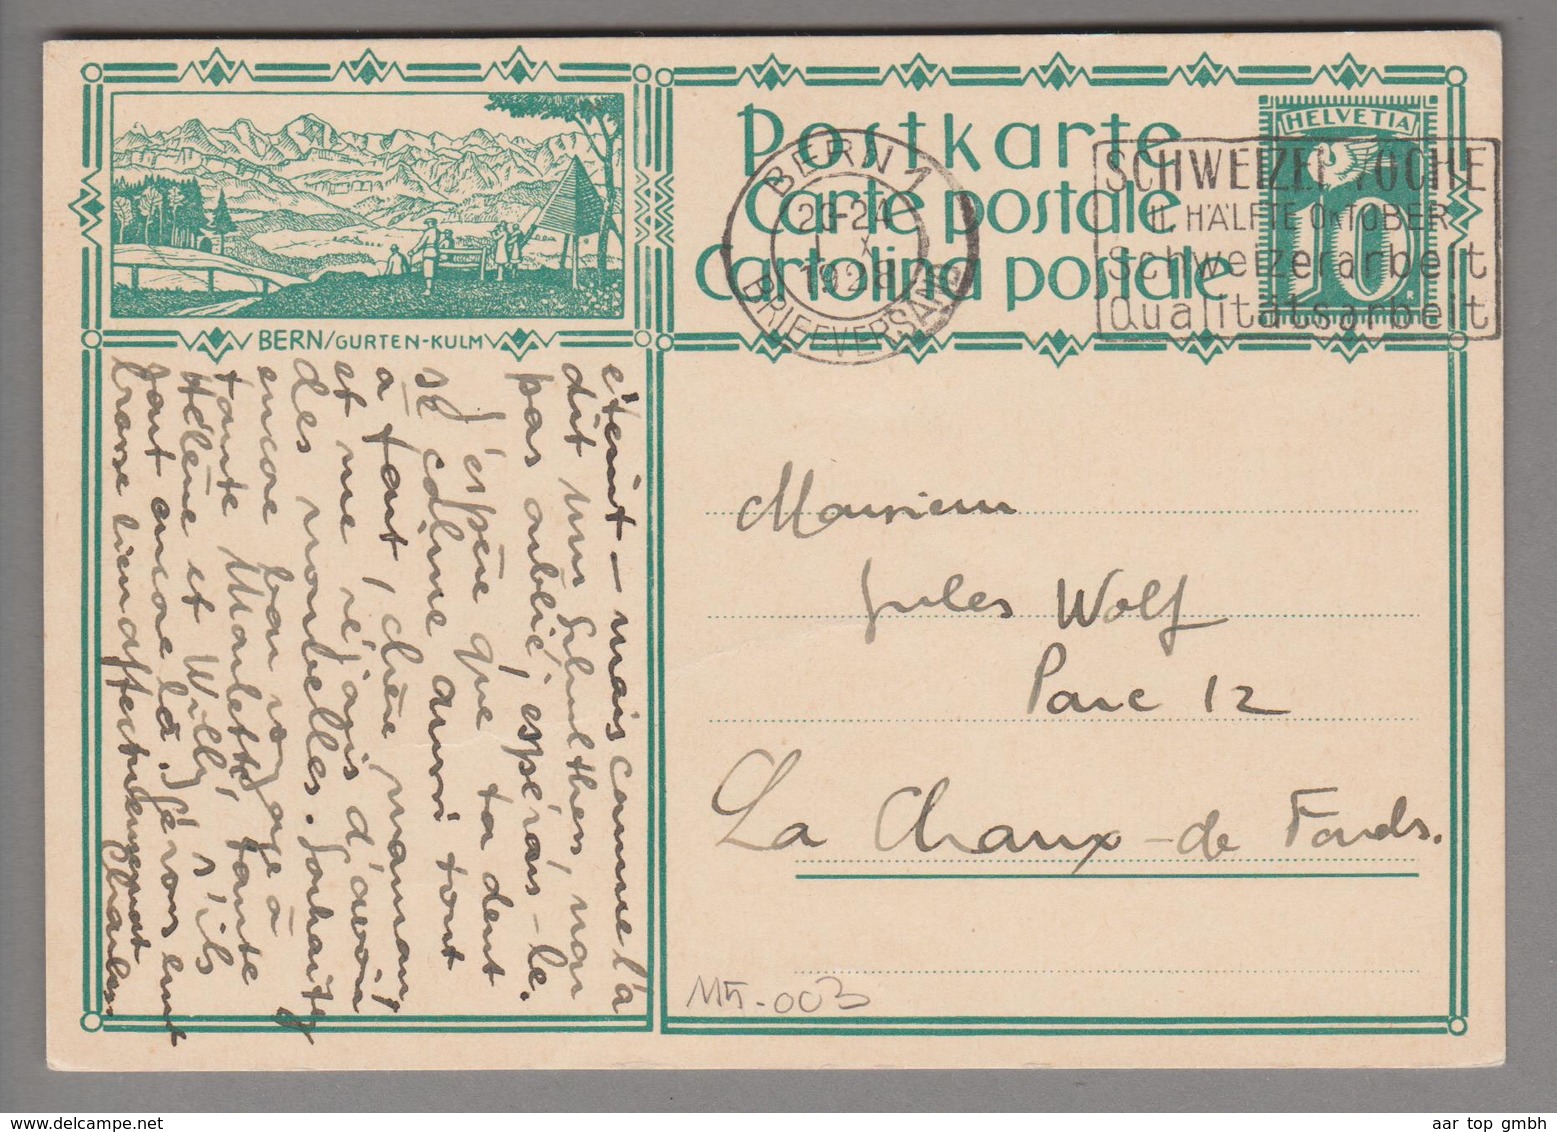 Postkarte
Carte postale
Cartolina postale
HELVETIA
10
BERN 1
20-24
X
1928
BRIEFVERSAND
SCHWEIZER WOCHE
II. HÄLFTE OKTOBER
Schweizerarbeit
Qualitätsarbeit
BERN/GURTEN-KULM
éteint – mais comme l'a
dit un Schulthess, non
pas oublié, espérons-le.
J'espère que ta dent
se calme aussi tout
à fait, chère maman!
et me réjouis d'avoir
des nouvelles. Souhaitez
encore bon voyage à
tante Mariette, tante
Hélène et Willy s'ils
sont encore là. Je vous
brasse bien affectueusement
Charles
Monsieur
Jules Wolf
Parc 12
La Chaux-de Fonds.
MT-003
aar top gmbh